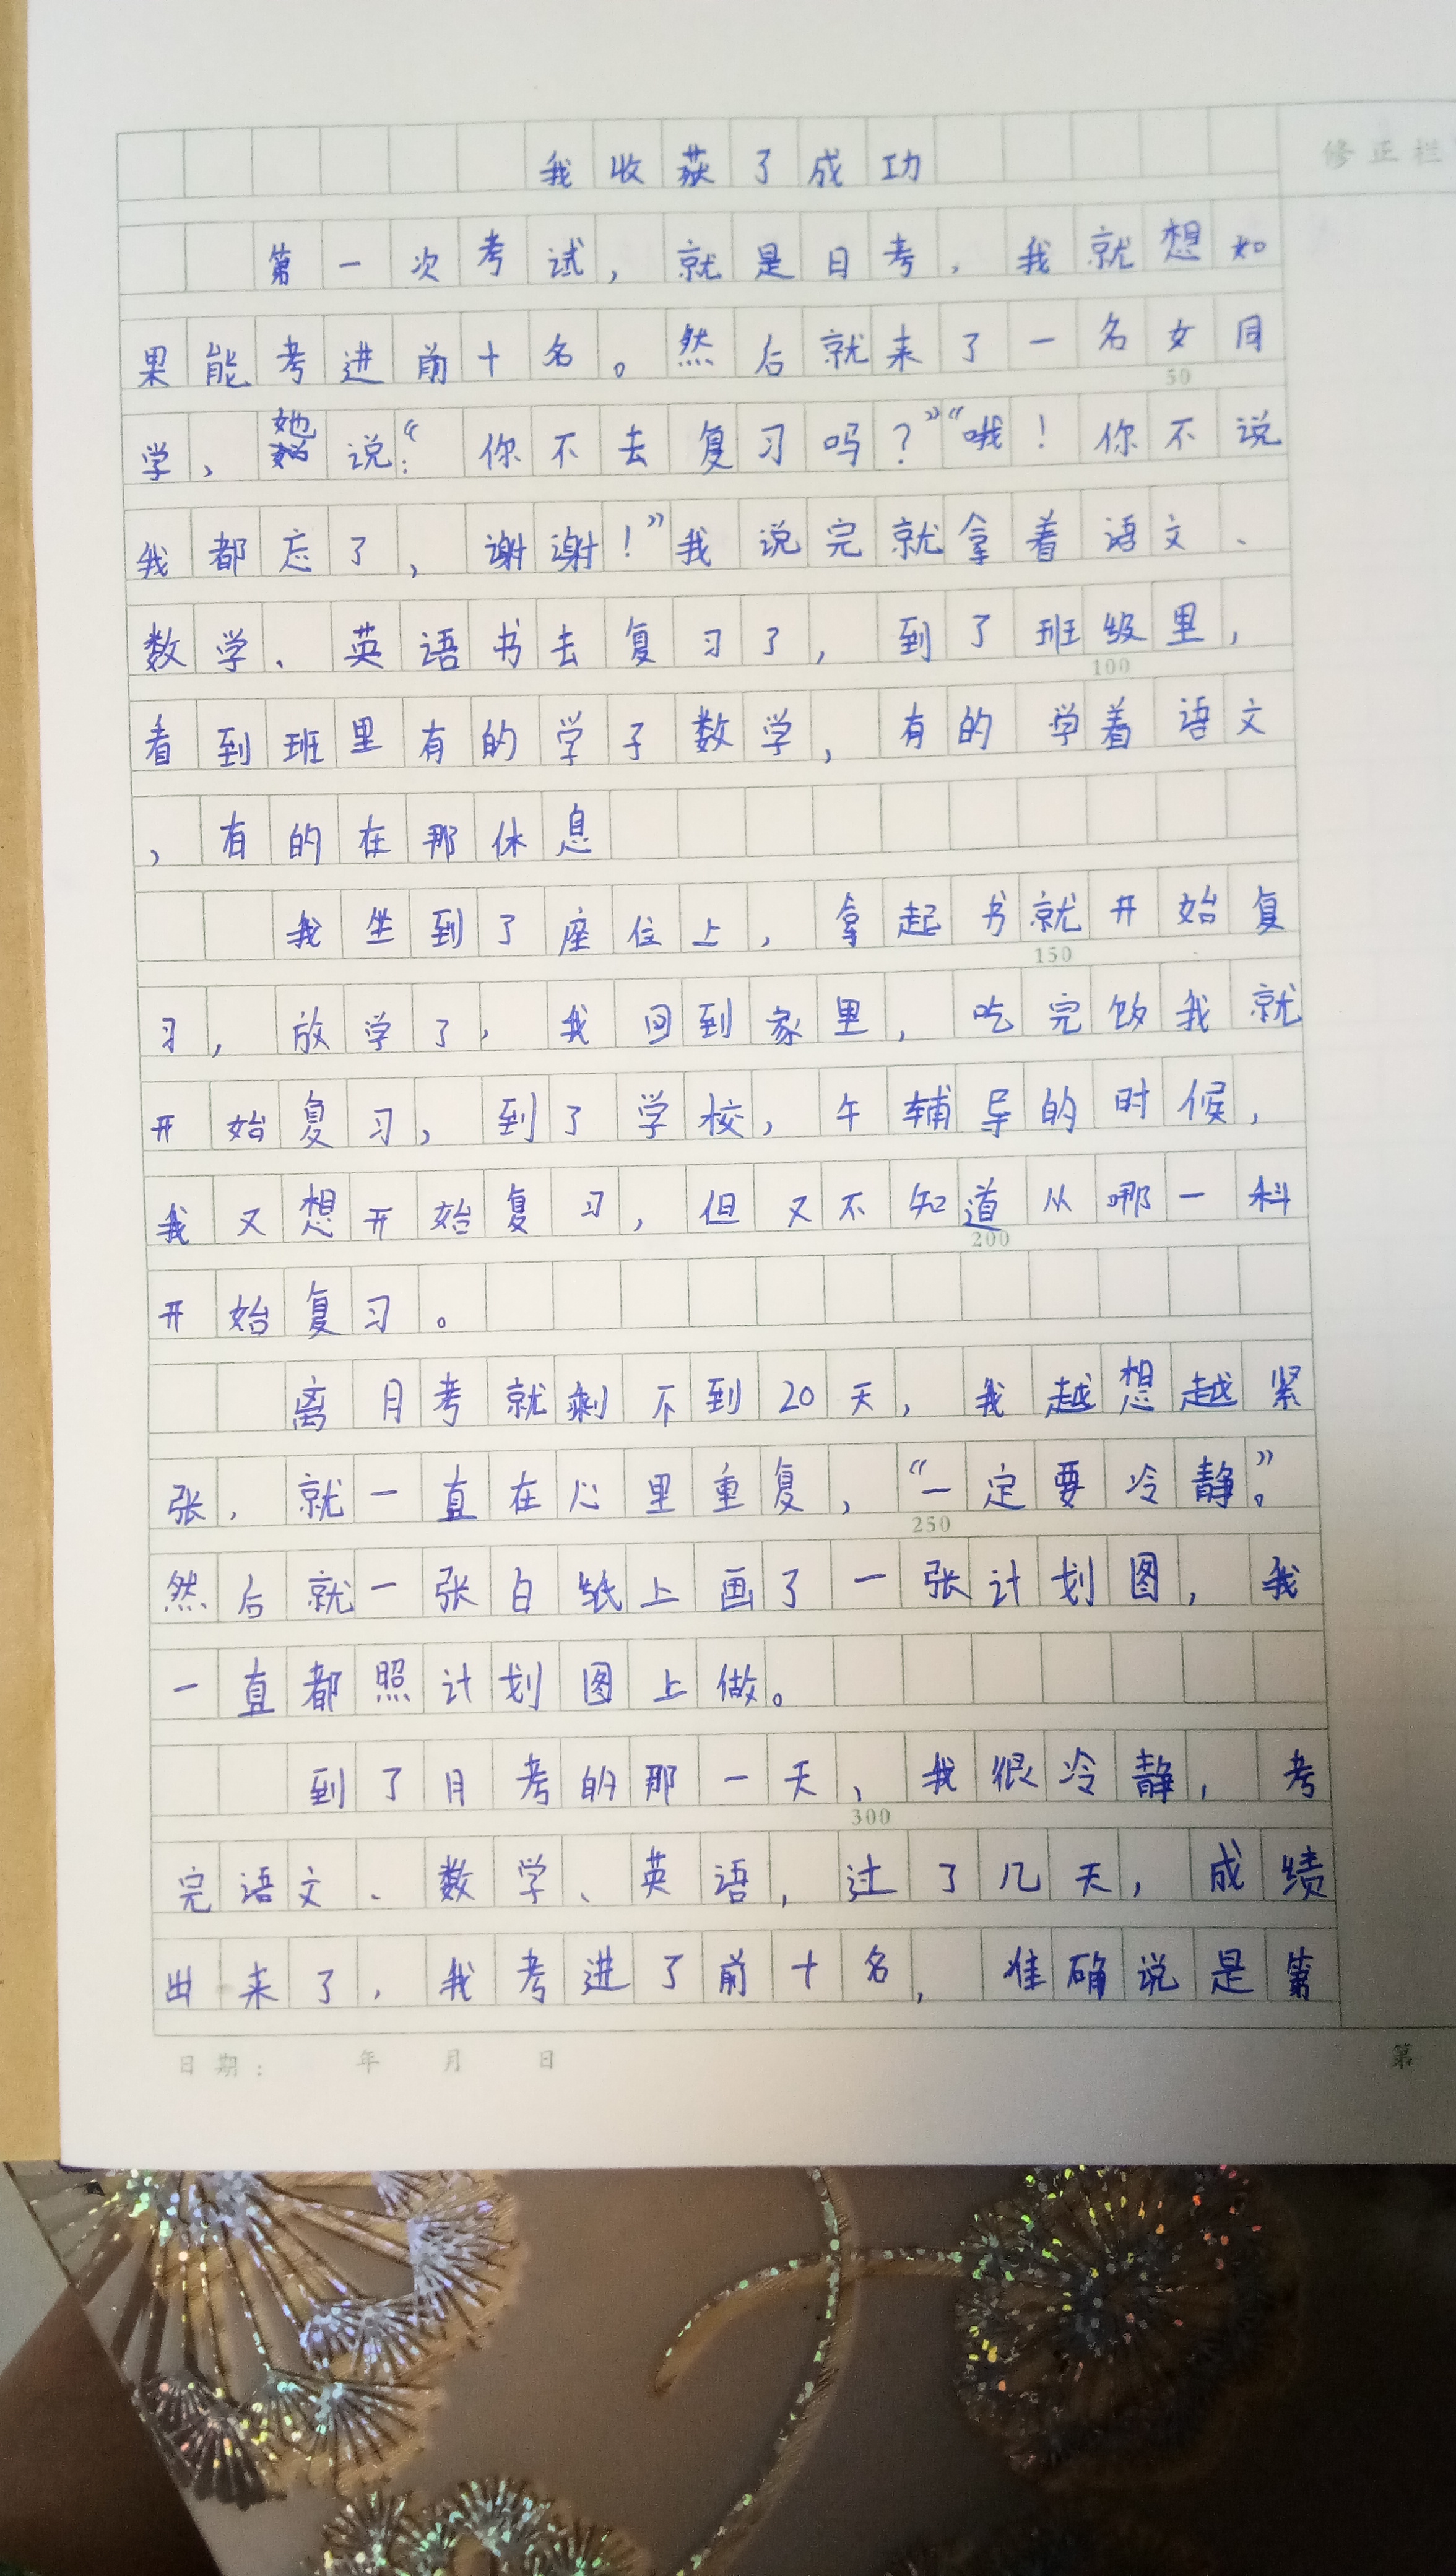 我收获了成功
修正栏
第一次考试，就是日考，我就想如
果能考进前十名。然后就来了一名女同
50
学，她说：“你不去复习吗？”“哦！你不说
我都忘了，谢谢！”我说完就拿着语文、
数学、英语书去复习了，到了班级里，
100
看到班里有的学子数学，有的学着语文
，有的在那休息
我坐到了座位上，拿起书就开始复
150
习，放学了，我回到家里，吃完饭我就
开始复习，到了学校，午辅导的时候，
我又想开始复习，但又不知道从哪一科
200
开始复习。
离月考就剩不到20天，我越想越紧
张，就一直在心里重复，“一定要冷静。”
250
然后就一张白纸上画了一张计划图，我
一直都照计划图上做。
到了月考的那一天，我很冷静，考
300
完语文、数学、英语，过了几天，成绩
出来了，我考进了前十名，准确说是第
日期： 年 月 日
第